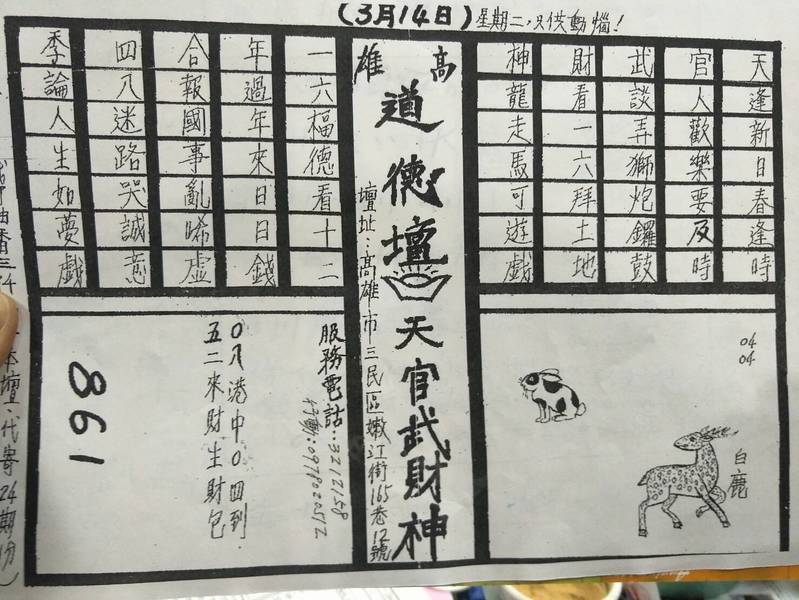 (3月14日)星期二,只供動惱!
天逢新日春逢時
官人歡樂要及時
武談弄獅炮鑼鼓
財看一六拜土地
神龍走馬可遊戲
高雄
道德壇
天官武財神
壇址:高雄市三民區嫩江街165巷12號
一六福德看十二
年過年來日日錢
合報國事亂唏虛
四八迷路哭誠意
季論人生如夢戲
04
04
白鹿
服務電話:3212158
行動:0978020512
0八港中0四到.
五二來財生財包
861
本壇、代寄24期份)